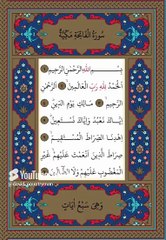 سُورَةُ الْفَاتِحَةِ مَكِّيَّةٌ
بِسْمِ اللَّهِ الرَّحْمَٰنِ الرَّحِيمِ
الْحَمْدُ لِلَّهِ رَبِّ الْعَالَمِينَ الرَّحْمَٰنِ
الرَّحِيمِ مَالِكِ يَوْمِ الدِّينِ
إِيَّاكَ نَعْبُدُ وَإِيَّاكَ نَسْتَعِينُ
اهْدِنَا الصِّرَاطَ الْمُسْتَقِيمَ
صِرَاطَ الَّذِينَ أَنْعَمْتَ عَلَيْهِمْ غَيْرِ
الْمَغْضُوبِ عَلَيْهِمْ وَلَا
وَهِيَ سَبْعُ آيَاتٍ
YouTube